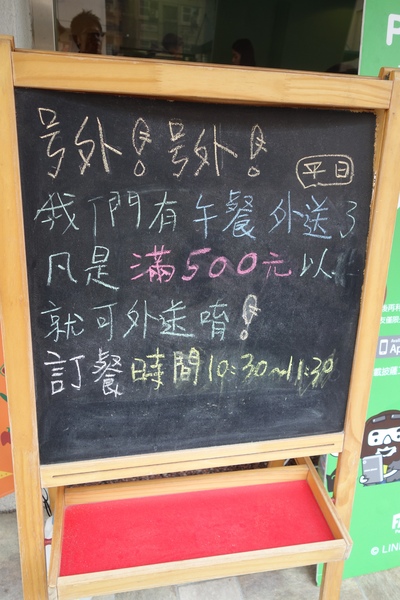 号外！号外！
平日
我們有午餐外送了
凡是滿500元以
就可外送唷！
訂餐時間10:30~11:30
LINE